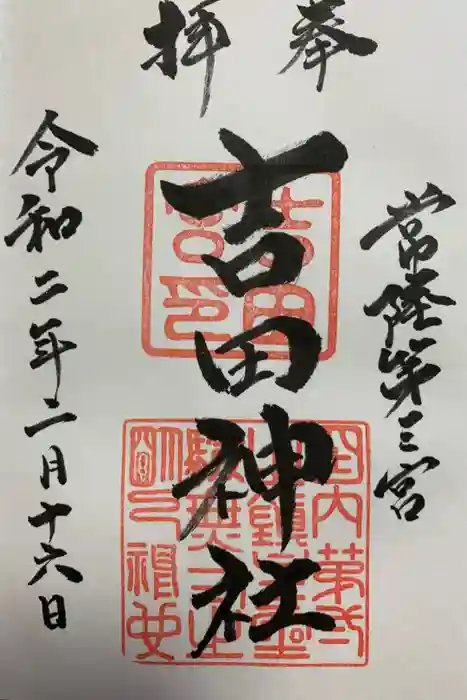 奉拝
常陸第三宮
吉田神社
令和二年二月十六日